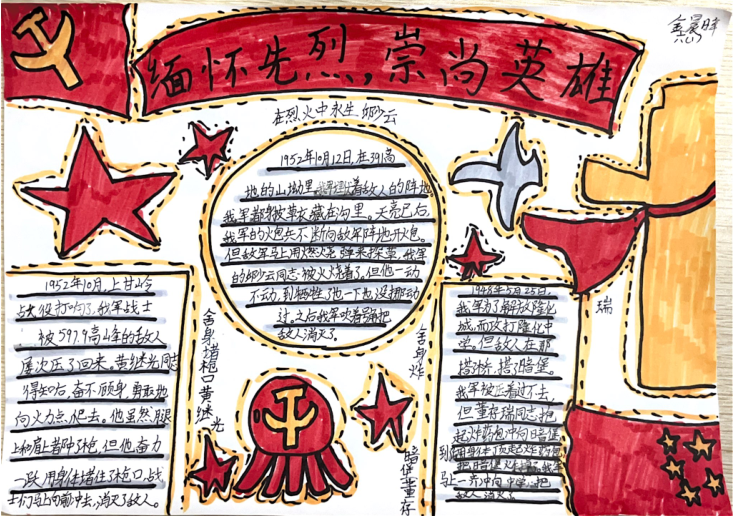 缅怀先烈,崇尚英雄
在烈火中永生 邱少云
1952年10月12日,在391高
地的山坳里 着敌人的阵地
我军都身披草衣藏在沟里。天亮已后,
我军的炮兵不断向敌军阵地开炮。
但敌军马上用燃烧弹来探草,我军
的邱少云同志被火烧着了,但他一动
不动,到牺牲了他一下也没挪动
过。之后我军吹着号把
敌人消灭了。
1952年10月,上甘岭
战役打响了,我军战士
被597.9高山年的敌人
屡次压了回来。黄继光同志
得知后,奋不顾身,勇敢地
向火力点爬去。他虽然腿
上和肩上都中了枪,但他奋力
一跃,用身体堵住了枪口,战
士们马上向前冲去,消灭了敌人。
舍身堵枪口黄继光
舍身炸
暗堡董存
瑞
1948年5月25日,
我军为了解放隆化
城,而攻打隆化中
学。但敌人在那
搭桥,搭了暗堡。
我军被逼着过不去,
但董存瑞同志抱
起炸药包冲向暗堡
到 用身体顶起炸药包
把暗堡 我军
马上一齐冲向中学,把
敌人消灭了